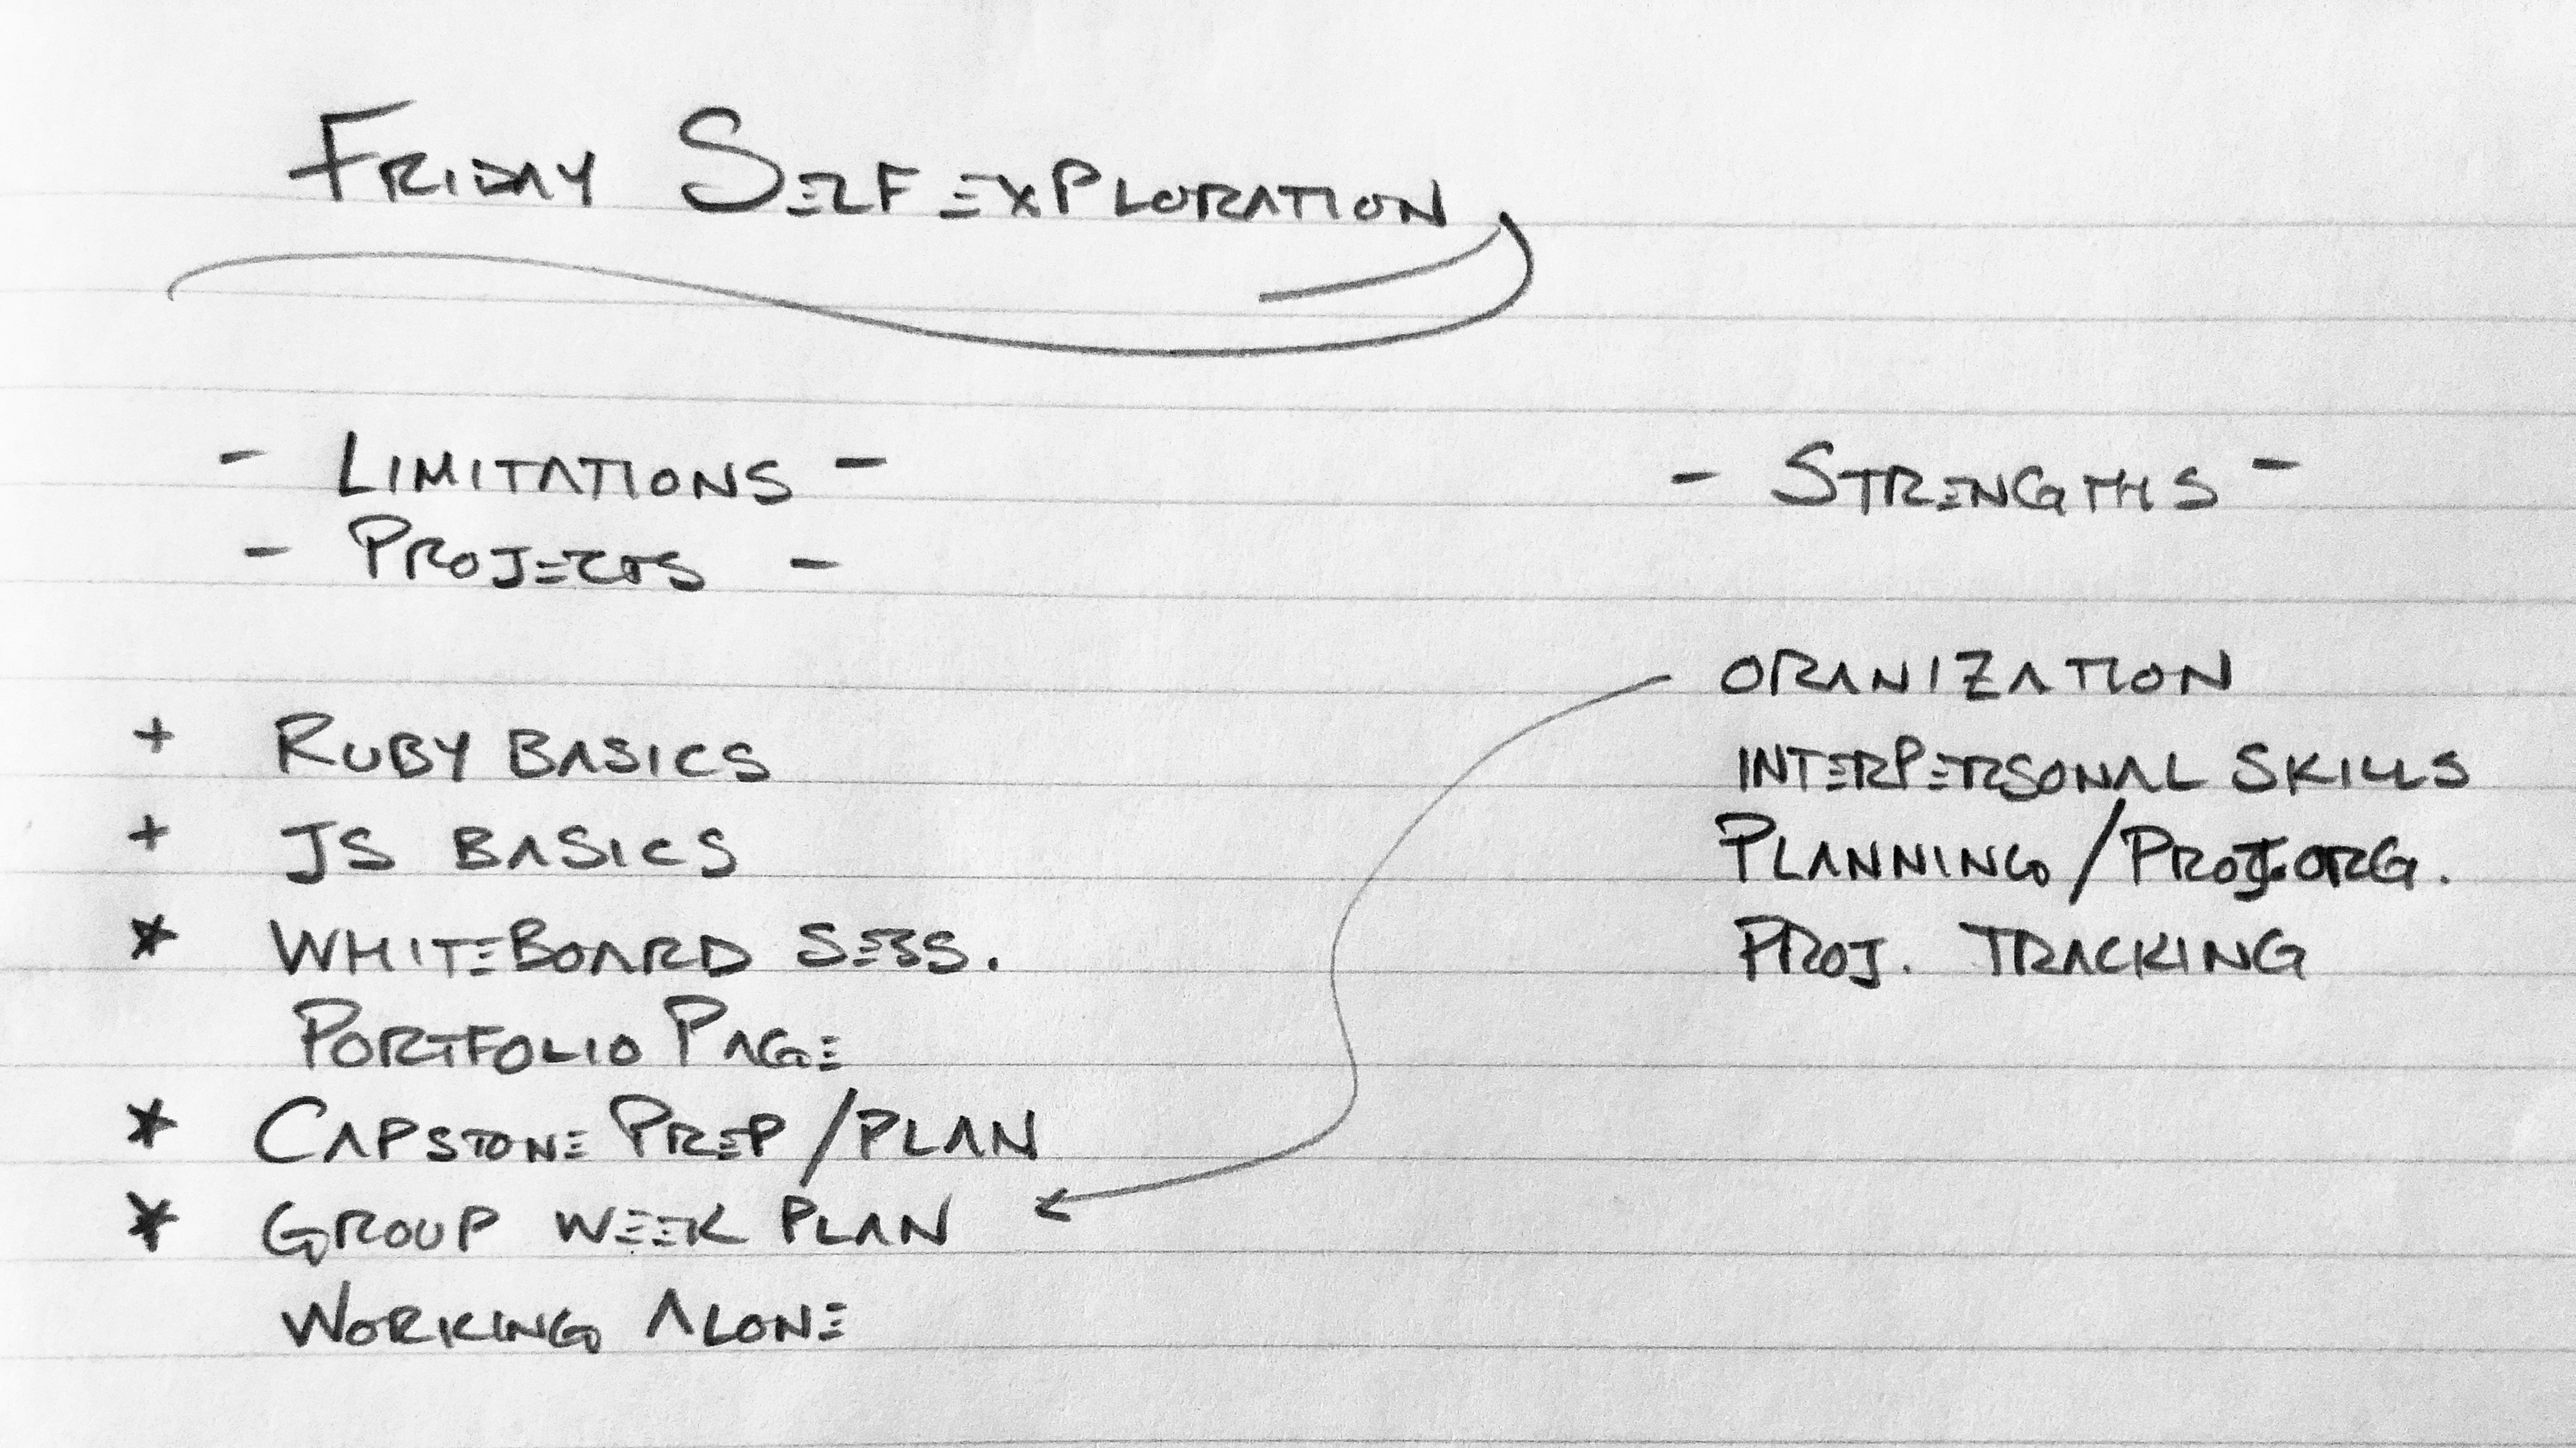 Friday Self exploration
- Limitations -
- Projects -
+ Ruby Basics
+ JS Basics
* Whiteboard Sess.
Portfolio Page
* Capstone Prep/Plan
* Group Week Plan
Working Alone
- Strengths -
Oranization
Interpersonal Skills
Planning/Proj.org.
Proj. Tracking